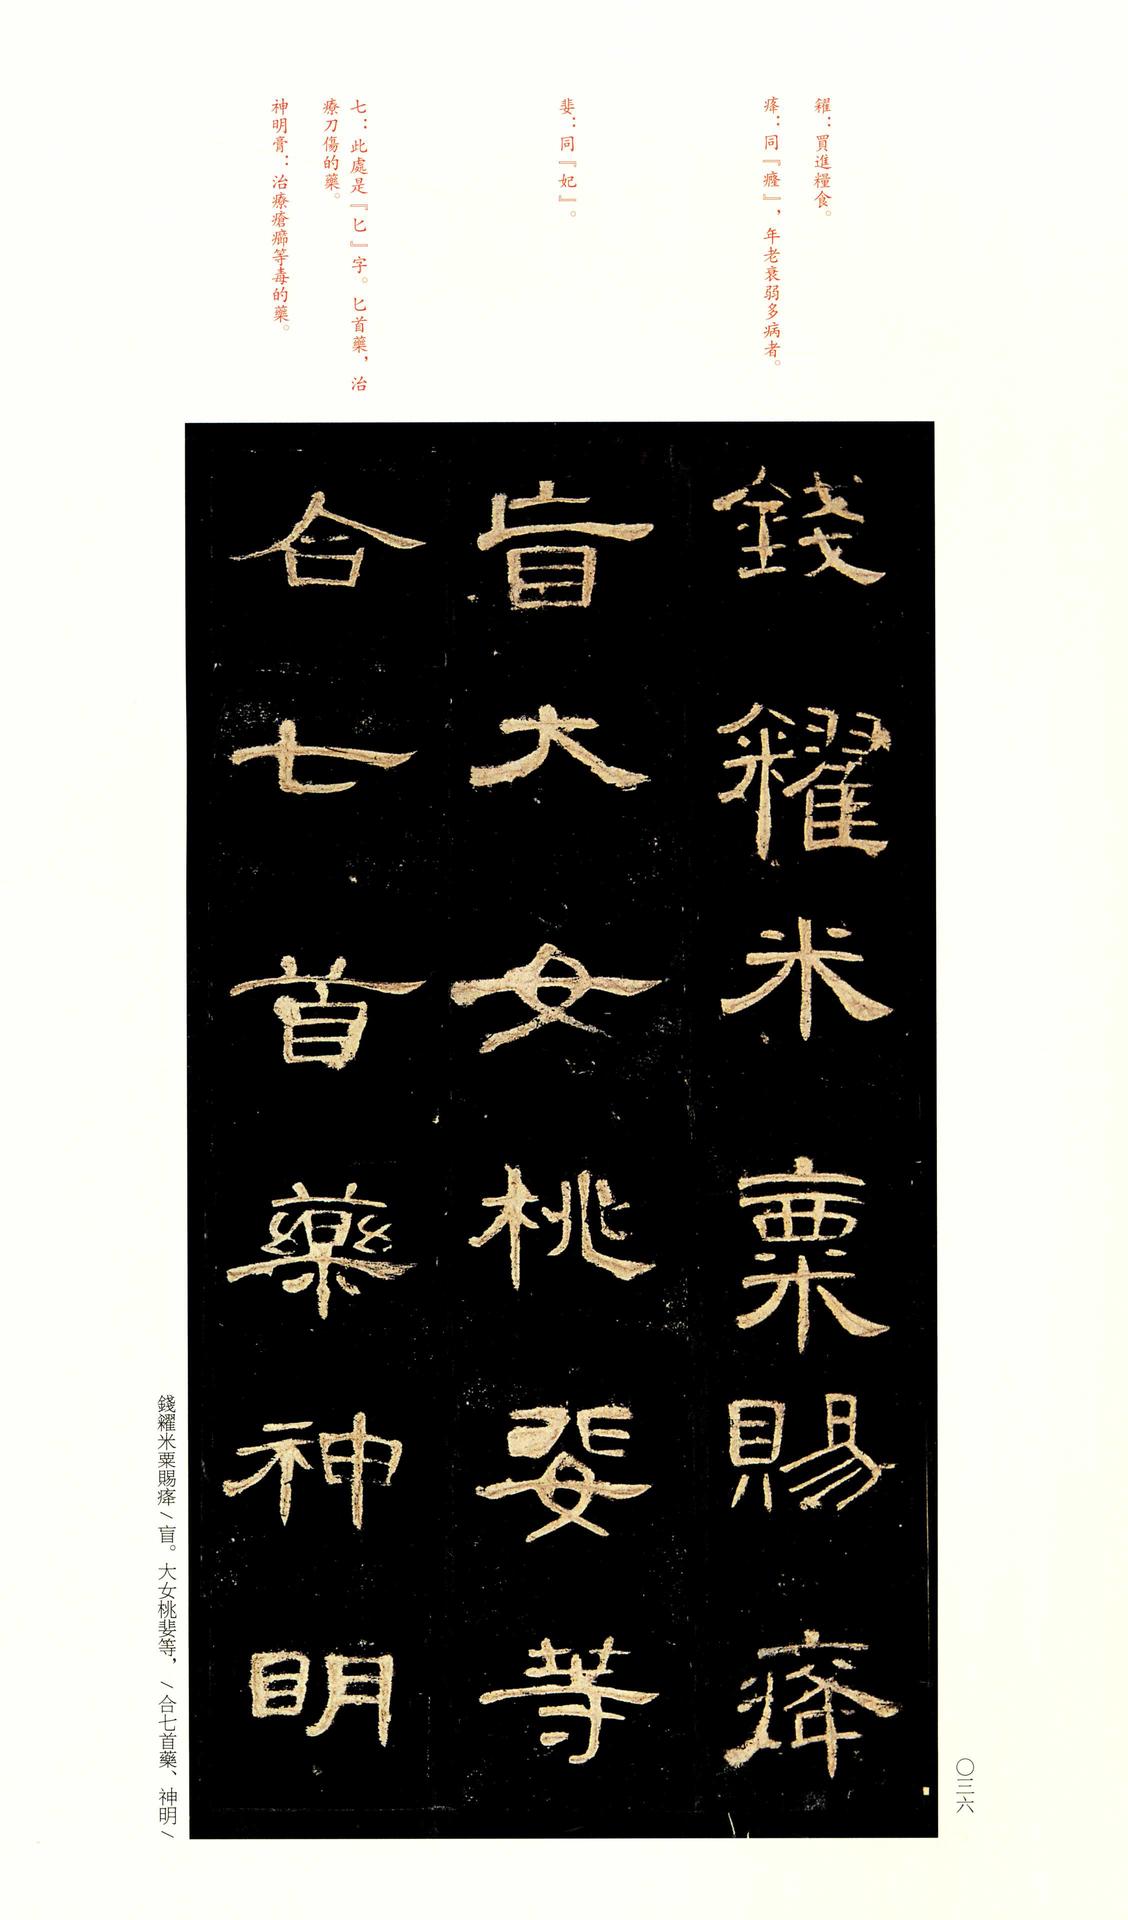 糴：買進糧食。
㾄：同『癃』，年老衰弱多病者。
婓：同『妃』。
七：此處是『匕』字。匕首藥，治
療刀傷的藥。
神明膏：治療瘡癤等毒的藥。
錢糴米粟賜㾄
盲大女桃婓等
合七首藥神明
錢糴米粟賜㾄／盲。大女桃婓等，／合七首藥、神明／
〇三六